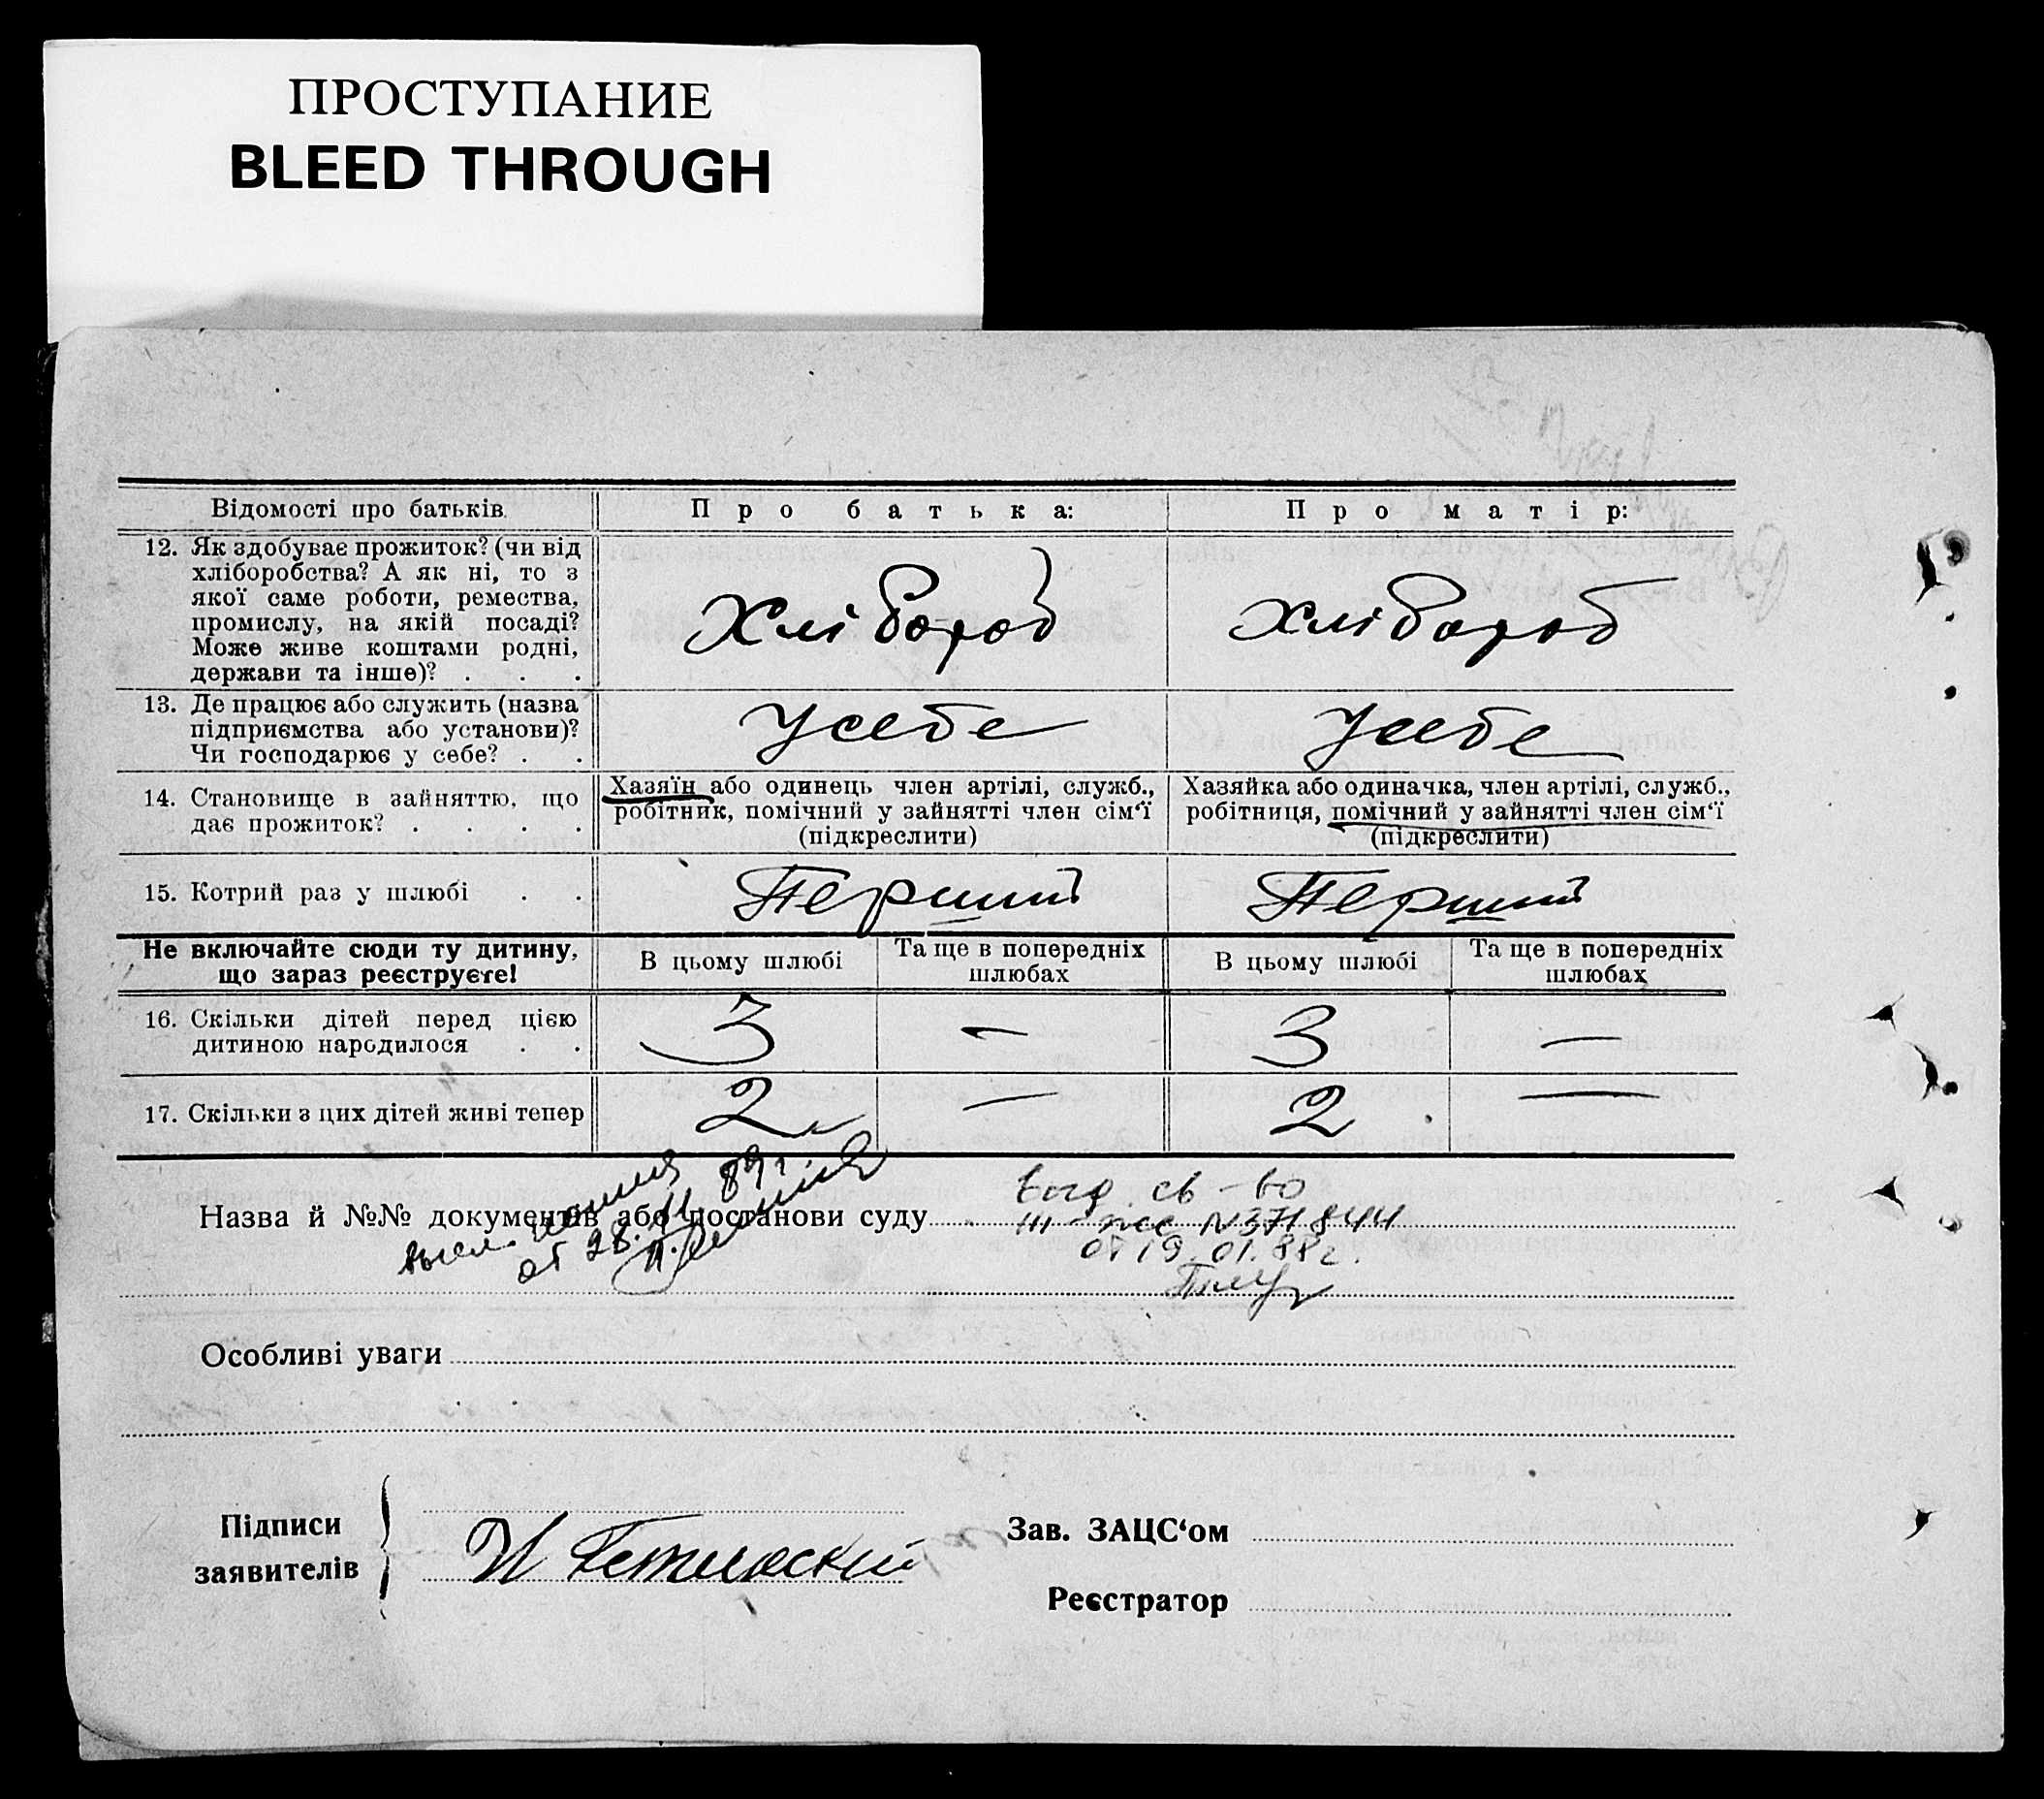 ПРОСТУПАНИЕ
BLEED THROUGH
Відомості про батьків.
Про батька:
Про матір:
12. Як здобуває прожиток? (чи від
хліборобства? А як ні, то з
якої саме роботи, ремества,
промислу, на якій посаді?
Може живе коштами родні,
держави та інше)? . . .
Хлібороб
Хлібороб
13. Де працює або служить (назва
підприємства або установи)?
Чи господарює у себе? . .
У себе
У себе
14. Становище в зайняттю, що
дає прожиток? . . . .
Хазяїн або одинець член артілі, служб.,
робітник, помічний у зайнятті член сім‘ї
(підкреслити)
Хазяйка або одиначка, член артілі, служб.,
робітниця, помічний у зайнятті член сім‘ї
(підкреслити)
15. Котрий раз у шлюбі . .
Перший
Перший
Не включайте сюди ту дитину,
що зараз реєструєте!
В цьому шлюбі
Та ще в попередніх
шлюбах
В цьому шлюбі
Та ще в попередніх
шлюбах
16. Скільки дітей перед цією
дитиною народилося . .
3
—
3
—
17. Скільки з цих дітей живі тепер
2
—
2
—
Назва й №№ документів або постанови суду
от 28. 11. 89г.
св-во
III-же N 371844
от 19.01.88г.
Особливі уваги
Підписи
заявителів
И
Зав. ЗАЦС‘ом
Реєстратор